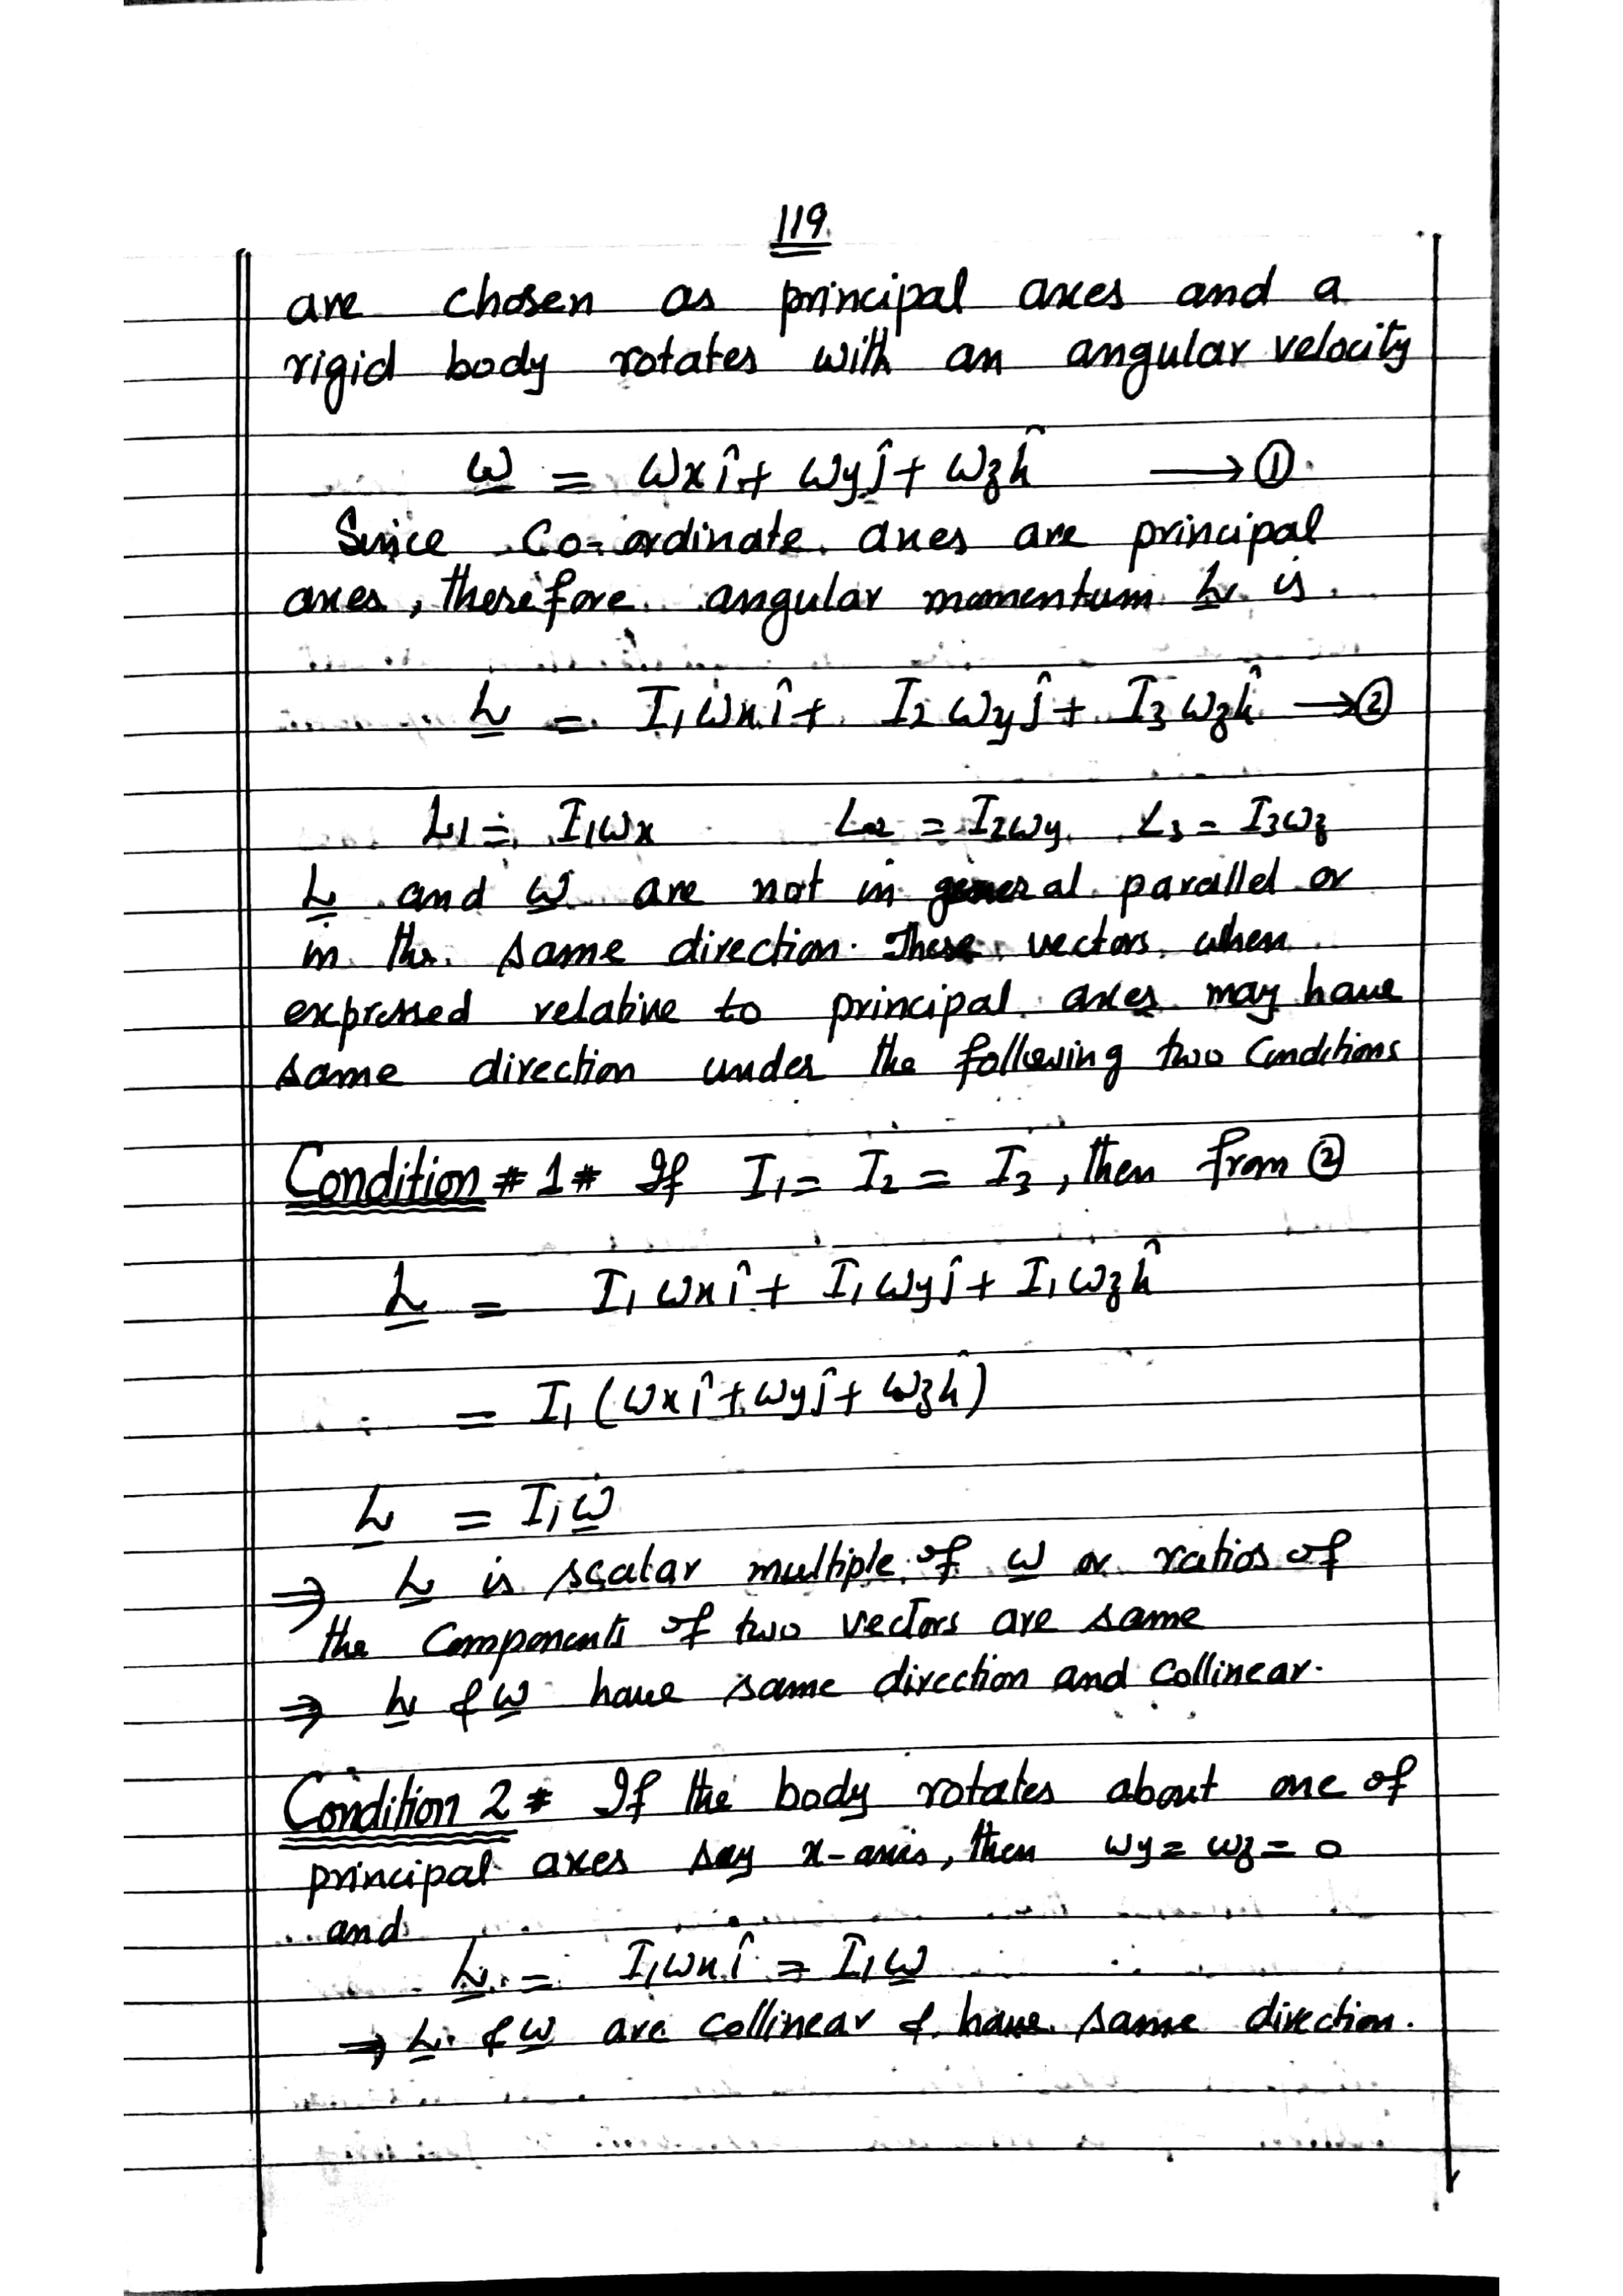 119.
are chosen as principal axes and a
rigid body rotates with an angular velocity
ω = ωx î + ωy ĵ + ωz k̂ ⟶ ①
Since Co-ordinate axes are principal
axes, therefore angular momentum L is
L = I₁ωx î + I₂ωy ĵ + I₃ωz k̂ ⟶ ②
L₁ = I₁ωx L₂ = I₂ωy L₃ = I₃ωz
L and ω are not in general parallel or
in the same direction. These vectors when
expressed relative to principal axes may have
same direction under the following two Conditions
Condition # 1 * If I₁ = I₂ = I₃, then from ②
L = I₁ωx î + I₁ωy ĵ + I₁ωz k̂
= I₁ (ωx î + ωy ĵ + ωz k̂)
L = I₁ω
⇒ L is scalar multiple of ω or ratios of
the Components of two vectors are same
⇒ L & ω have same direction and Collinear.
Condition 2 * If the body rotates about one of
principal axes say x-axis, then ωy = ωz = 0
and
L = I₁ωx î = I₁ω
⇒ L & ω are Collinear & have same direction.